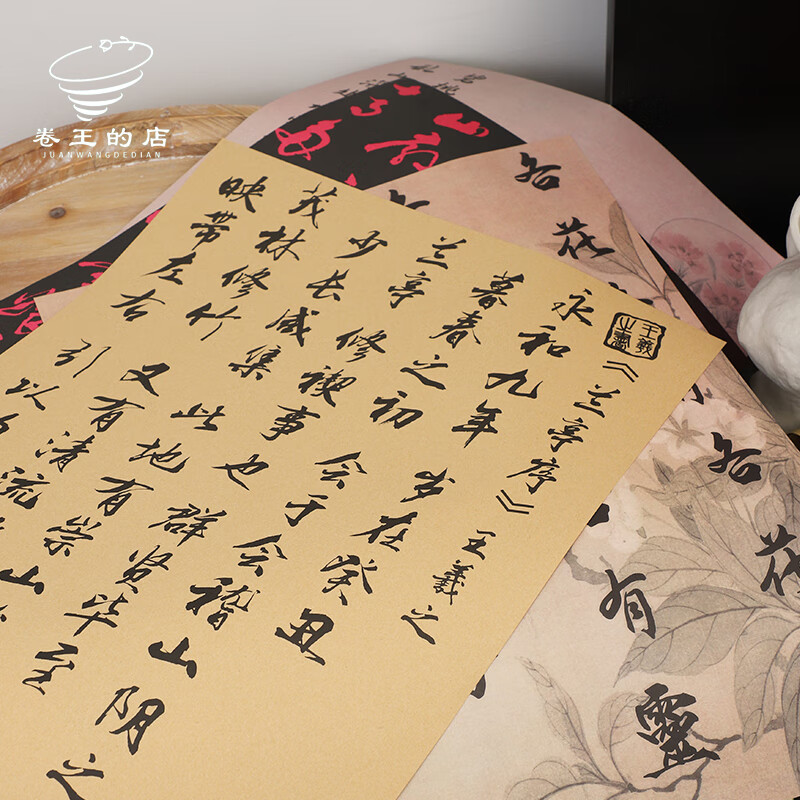 卷王的店
JUANWANGDEDIAN
王羲之書
《兰亭序》 王羲之
永和九年 岁在癸丑
暮春之初 会于会稽山阴之
兰亭 修禊事也 群贤毕至
少长咸集 此地有崇山
茂林修竹 又有清流
映带左右 引以
名花
名花
有靈